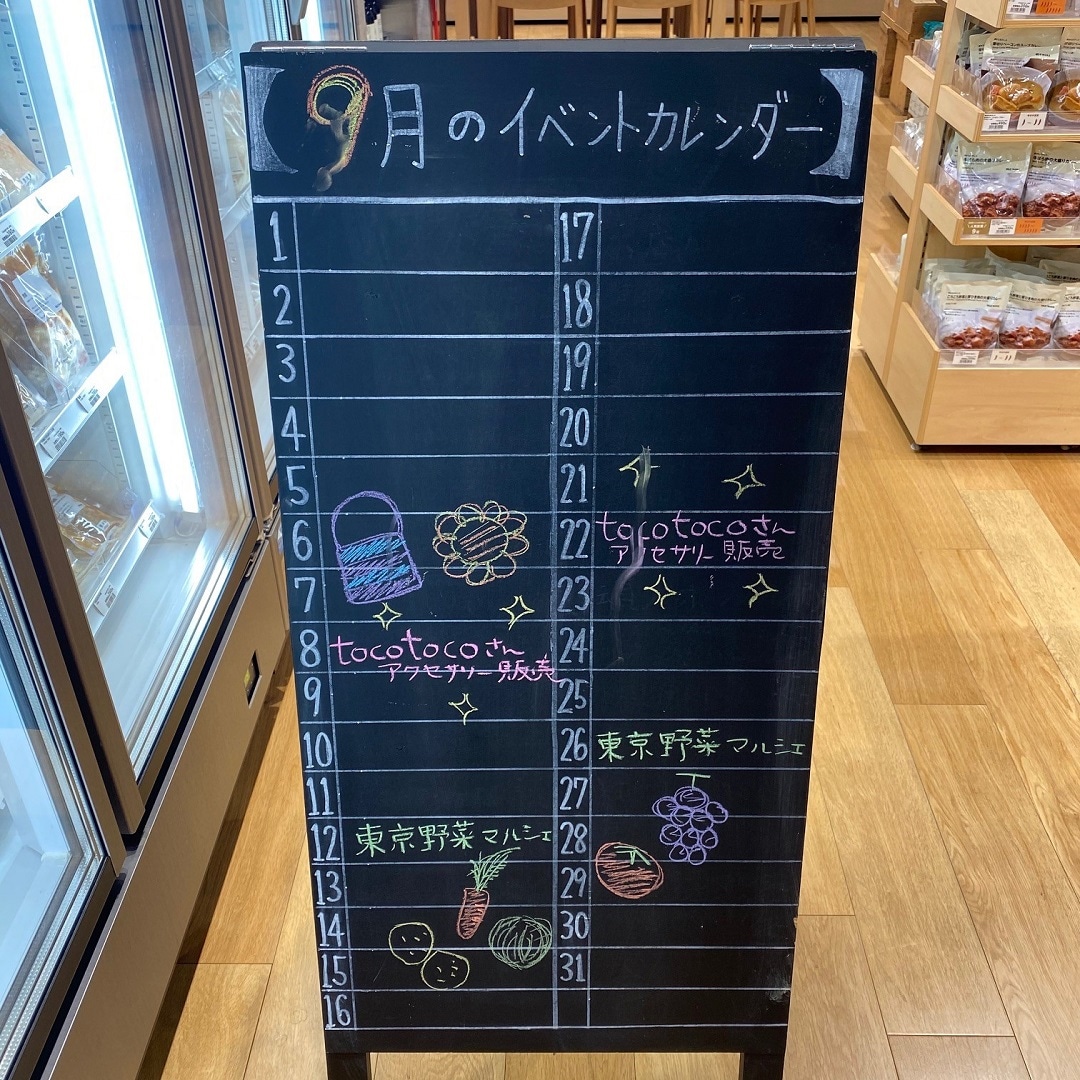 【9月のイベントカレンダー】
1
2
3
4
5
6
7
8 tocotocoさん
アクセサリー販売
9
10
11
12 東京野菜マルシェ
13
14
15
16
17
18
19
20
21
22 tocotocoさん
アクセサリー販売
23
24
25
26 東京野菜マルシェ
27
28
29
30
31